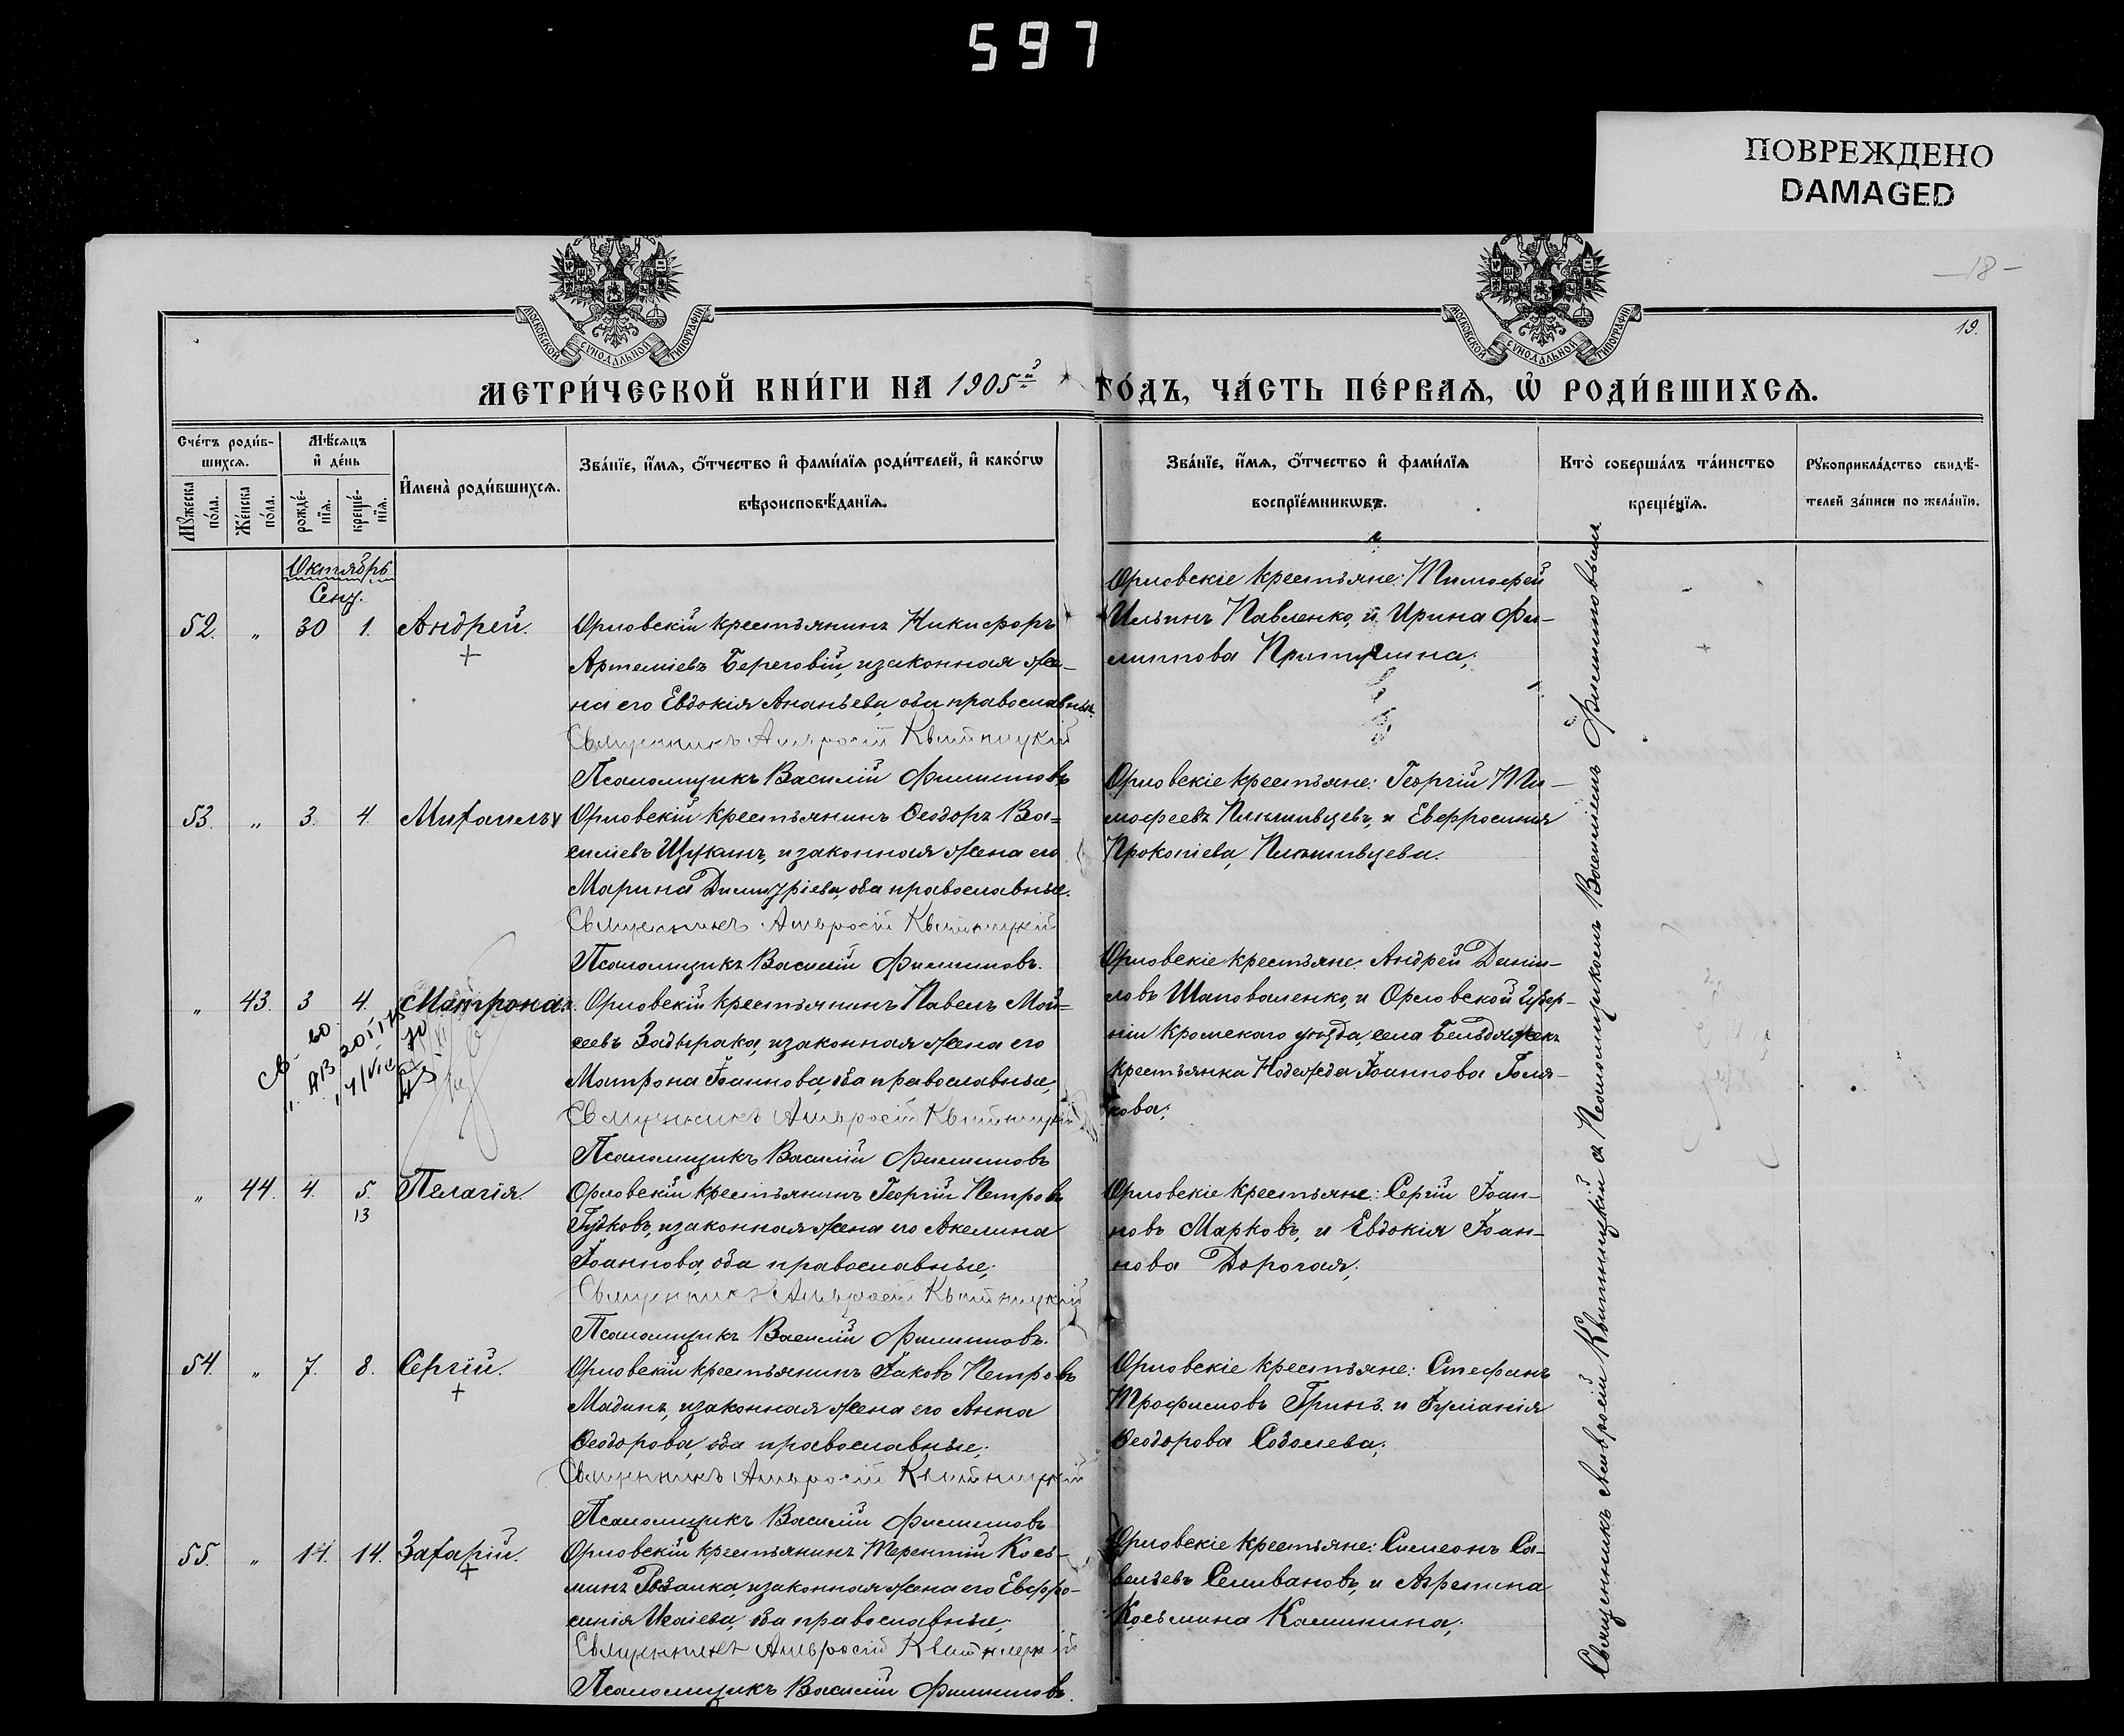 597
ПОВРЕЖДЕНО
DAMAGED
—18—
19.
МОСКОВСКОЙ СѴНОДАЛЬНОЙ ТИПОГРАФІИ
МОСКОВСКОЙ СѴНОДАЛЬНОЙ ТИПОГРАФІИ
МЕТРИ́ЧЕСКОЙ КНИ́ГИ НА 1905й ГО́ДЪ, ЧА́СТЬ ПЕ́РВАѦ, Ѡ҆ РОДИ́ВШИХСѦ.
Сче́тъ роди́в-
шихсѧ.
Мѣ́сѧцъ
и҆ де́нь
Мꙋ́жеска
по́ла.
Же́нска
по́ла.
рожде́-
нїѧ.
креще́-
нїѧ.
И҆мена̀ роди́вшихсѧ.
Зва́нїе, и҆́мѧ, ѻ҆́тчество и҆ фами́лїѧ роди́телей, и҆ како́гѡ
вѣроисповѣ́данїѧ.
Зва́нїе, и҆́мѧ, ѻ҆́тчество и҆ фами́лїѧ
воспрїе́мникѡвъ.
Кто̀ соверша́лъ та́инство
креще́нїѧ.
Рꙋкоприкла́дство свидѣ́-
телей за́писи по жела́нїю.
Октябрь
Сент.
52. „ 30 1. Андрей.
Орловскій крестьянинъ Никифоръ
Артеміевъ Береговій, и законная же-
на его Евдокія Ананьева, оба православные.
Священникъ Амвросій Квитницкій
Псаломщикъ Василій Филиповъ
Орловскіе крестьяне: Тимофей
Ильинъ Павленко, и Ирина Фи-
липпова
53. „ 3. 4. Михаилъ
Орловскій крестьянинъ Ѳеодоръ Ва-
силіевъ Щукинъ, и законная жена его
Марина Димитріева, оба православные.
Священникъ Амвросій Квитницкій
Псаломщикъ Василій Филиповъ.
Орловскіе крестьяне: Георгій Ти-
мофеевъ и Евфросинія
Прокопіева
„ 43. 3 4. Матрона.
Орловскій крестьянинъ Павелъ Мой-
сеевъ Задырака, и законная жена его
Матрона Іоаннова, оба православные,
Священникъ Амвросій Квитницкій
Псаломщикъ Василій Филиповъ
Орловскіе крестьяне: Андрей Дании-
ловъ Шаповаленко, и Орловской губер-
ніи Кромскаго уѣзда, села
крестьянка Надежда Іоаннова
кова;
„ 44. 4. 5. Пелагія.
13
Орловскій крестьянинъ Георгій Петровъ
Гудковъ, и законная жена его Акелина
Іоаннова, оба православные;
Священникъ Амвросій Квитницкій
Псаломщикъ Василій Филиповъ.
Орловскіе крестьяне: Сергій Іоан-
новъ Марковъ, и Евдокія Іоан-
нова Дорогая;
54. „ 7. 8. Сергій.
Орловскій крестьянинъ Іаковъ Петровъ
Мадинъ, и законная жена его Анна
Ѳеодорова, оба православные;
Священникъ Амвросій Квитницкій
Псаломщикъ Василій Филиповъ
Орловскіе крестьяне: Стефанъ
Трофимовъ Гринь и Іуліанія
Ѳеодорова Содолева;
55. „ 14. Захарій.
Орловскій крестьянинъ Терентій Кось-
минъ и законная жена его Евфро-
синія Исаіева, оба православные;
Священникъ Амвросій Квитницкій
Псаломщикъ Василій Филиповъ.
Орловскіе крестьяне: Симеонъ Са-
вельевъ Селивановъ, и Агрепина
Косьмина Калинина;
Священникъ Амвросій Квитницкій съ Псаломщикомъ Василіемъ Филипповымъ